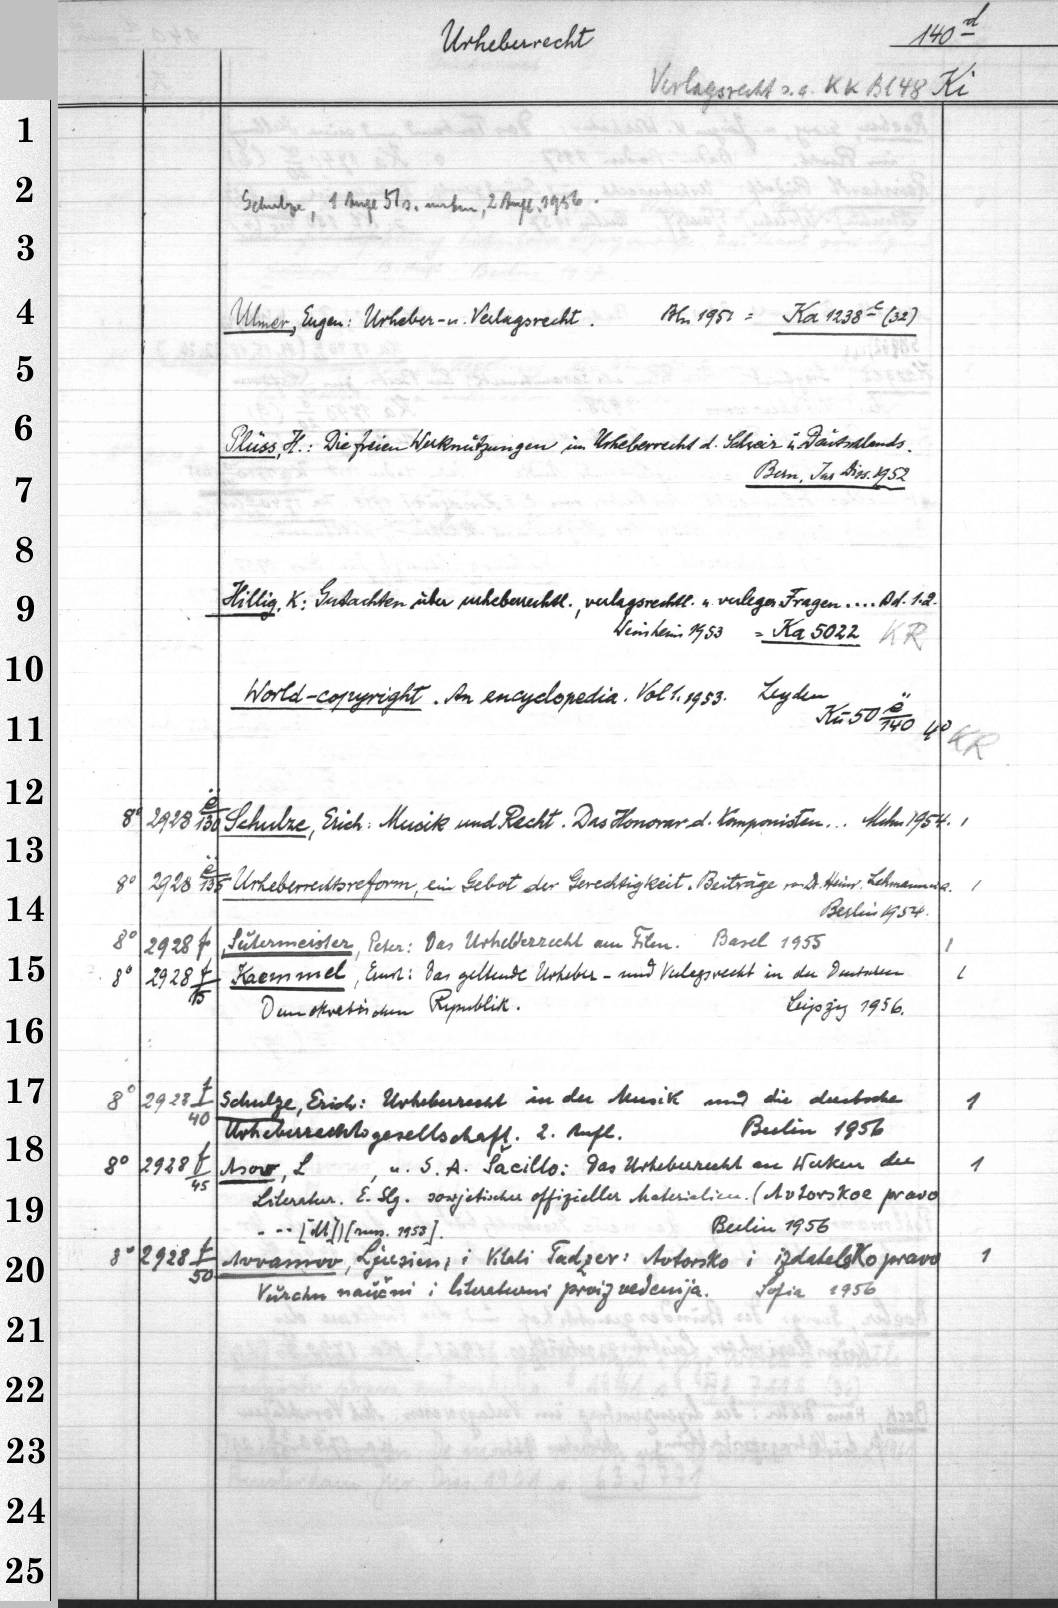 Urheberrecht 140 d
Verlagsrecht s.a. KK Bl 48 Ki
1
2 Schulze, 1 Aufl 51 s. unten, 2 Aufl. 1956.
3
4 Ulmer, Eugen: Urheber- u. Verlagsrecht. Bln 1951 = Ka 1238 c (32)
5
6 Plüss, H.: Die freien Werknutzungen im Urheberrecht d. Schweiz u. Deutschlands.
7 Bern, Jur Diss. 1952
8
9 Hillig, K: Gutachten über urheberrechtl., verlagsrechtl. u. verleger. Fragen .... Bd. 1.2.
Weinheim 1953 = Ka 5022 KR
10
World-copyright. An encyclopedia. Vol 1. 1953. Leyden
11 Kü 50 ë/140 4° KR
12
8° 2928 ë/130 Schulze, Erich: Musik und Recht. Das Honorar d. Komponisten... Mchn. 1954. 1
13
8° 2928 ë/135 Urheberrechtsreform, ein Gebot der Gerechtigkeit. Beiträge von Dr. Heinr. Lehmann u.a. 1
14 Berlin 1954.
8° 2928 f, Sutermeister, Peter: Das Urheberrecht am Film. Basel 1955 1
15 8° 2928 f/15 Kaemmel, Ernst: Das geltende Urheber- und Verlagsrecht in der Deutschen 1
Demokratischen Republik. Leipzig 1956.
16
17 8° 2928 f/40 Schulze, Erich: Urheberrecht in der Musik und die deutsche 1
18 Urheberrechtsgesellschaft. 2. Aufl. Berlin 1956
8° 2928 f/45 Asow, L , u. S. A. Šacillo: Das Urheberrecht an Werken der 1
19 Literatur. E. Slg. sowjetischer offizieller Materialien. (Avtorskoe pravo
- -- [dt.]) [russ. 1953]. Berlin 1956
20 8° 2928 f/50 Avramov, Ljucien, i Vitali Tadžer: Avtorsko i izdatelsko pravo 1
Vŭrchu naučni i literaturni proizvedenija. Sofia 1956
21
22
23
24
25